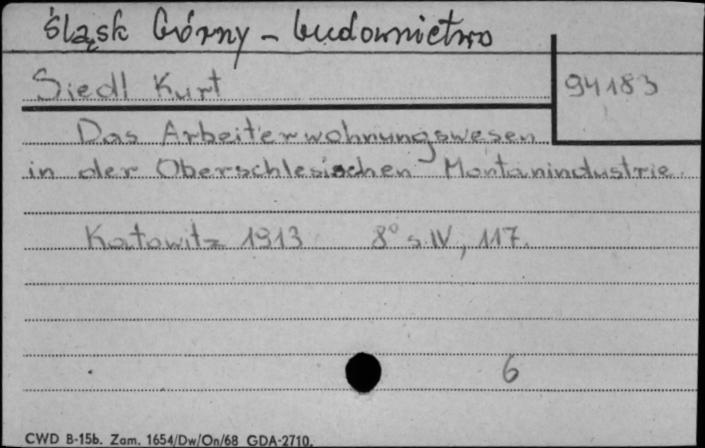 Śląsk Górny - budownictwo
Siedl Kurt
94183
Das Arbeiterwohnungswesen
in der Oberschlesischen Montanindustrie
Katowitz 1913 8° s. IV, 117.
6
CWD B-15b. Zam. 1654/Dw/On/68 GDA-2710.